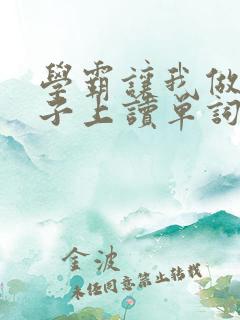 學霸讓我做
子上讀單詞
金波
未经同意禁止转载